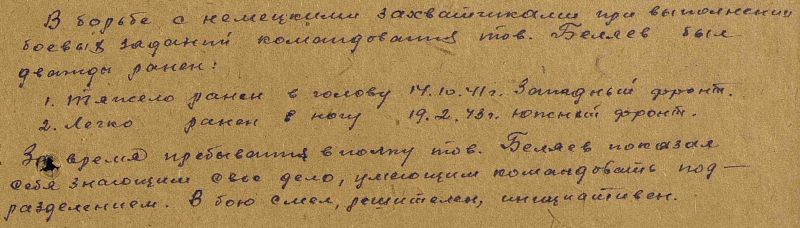 В борьбе с немецкими захватчиками при выполнении
боевых заданий командования тов. Беляев был
дважды ранен:
1. Тяжело ранен в голову 14.10.41г. Западный фронт.
2. Легко ранен в ногу 19.2.43г. Южный фронт.
За время пребывания в полку тов. Беляев показал
себя знающим свое дело, умеющим командовать под-
разделением. В бою смел, решителен, инициативен.